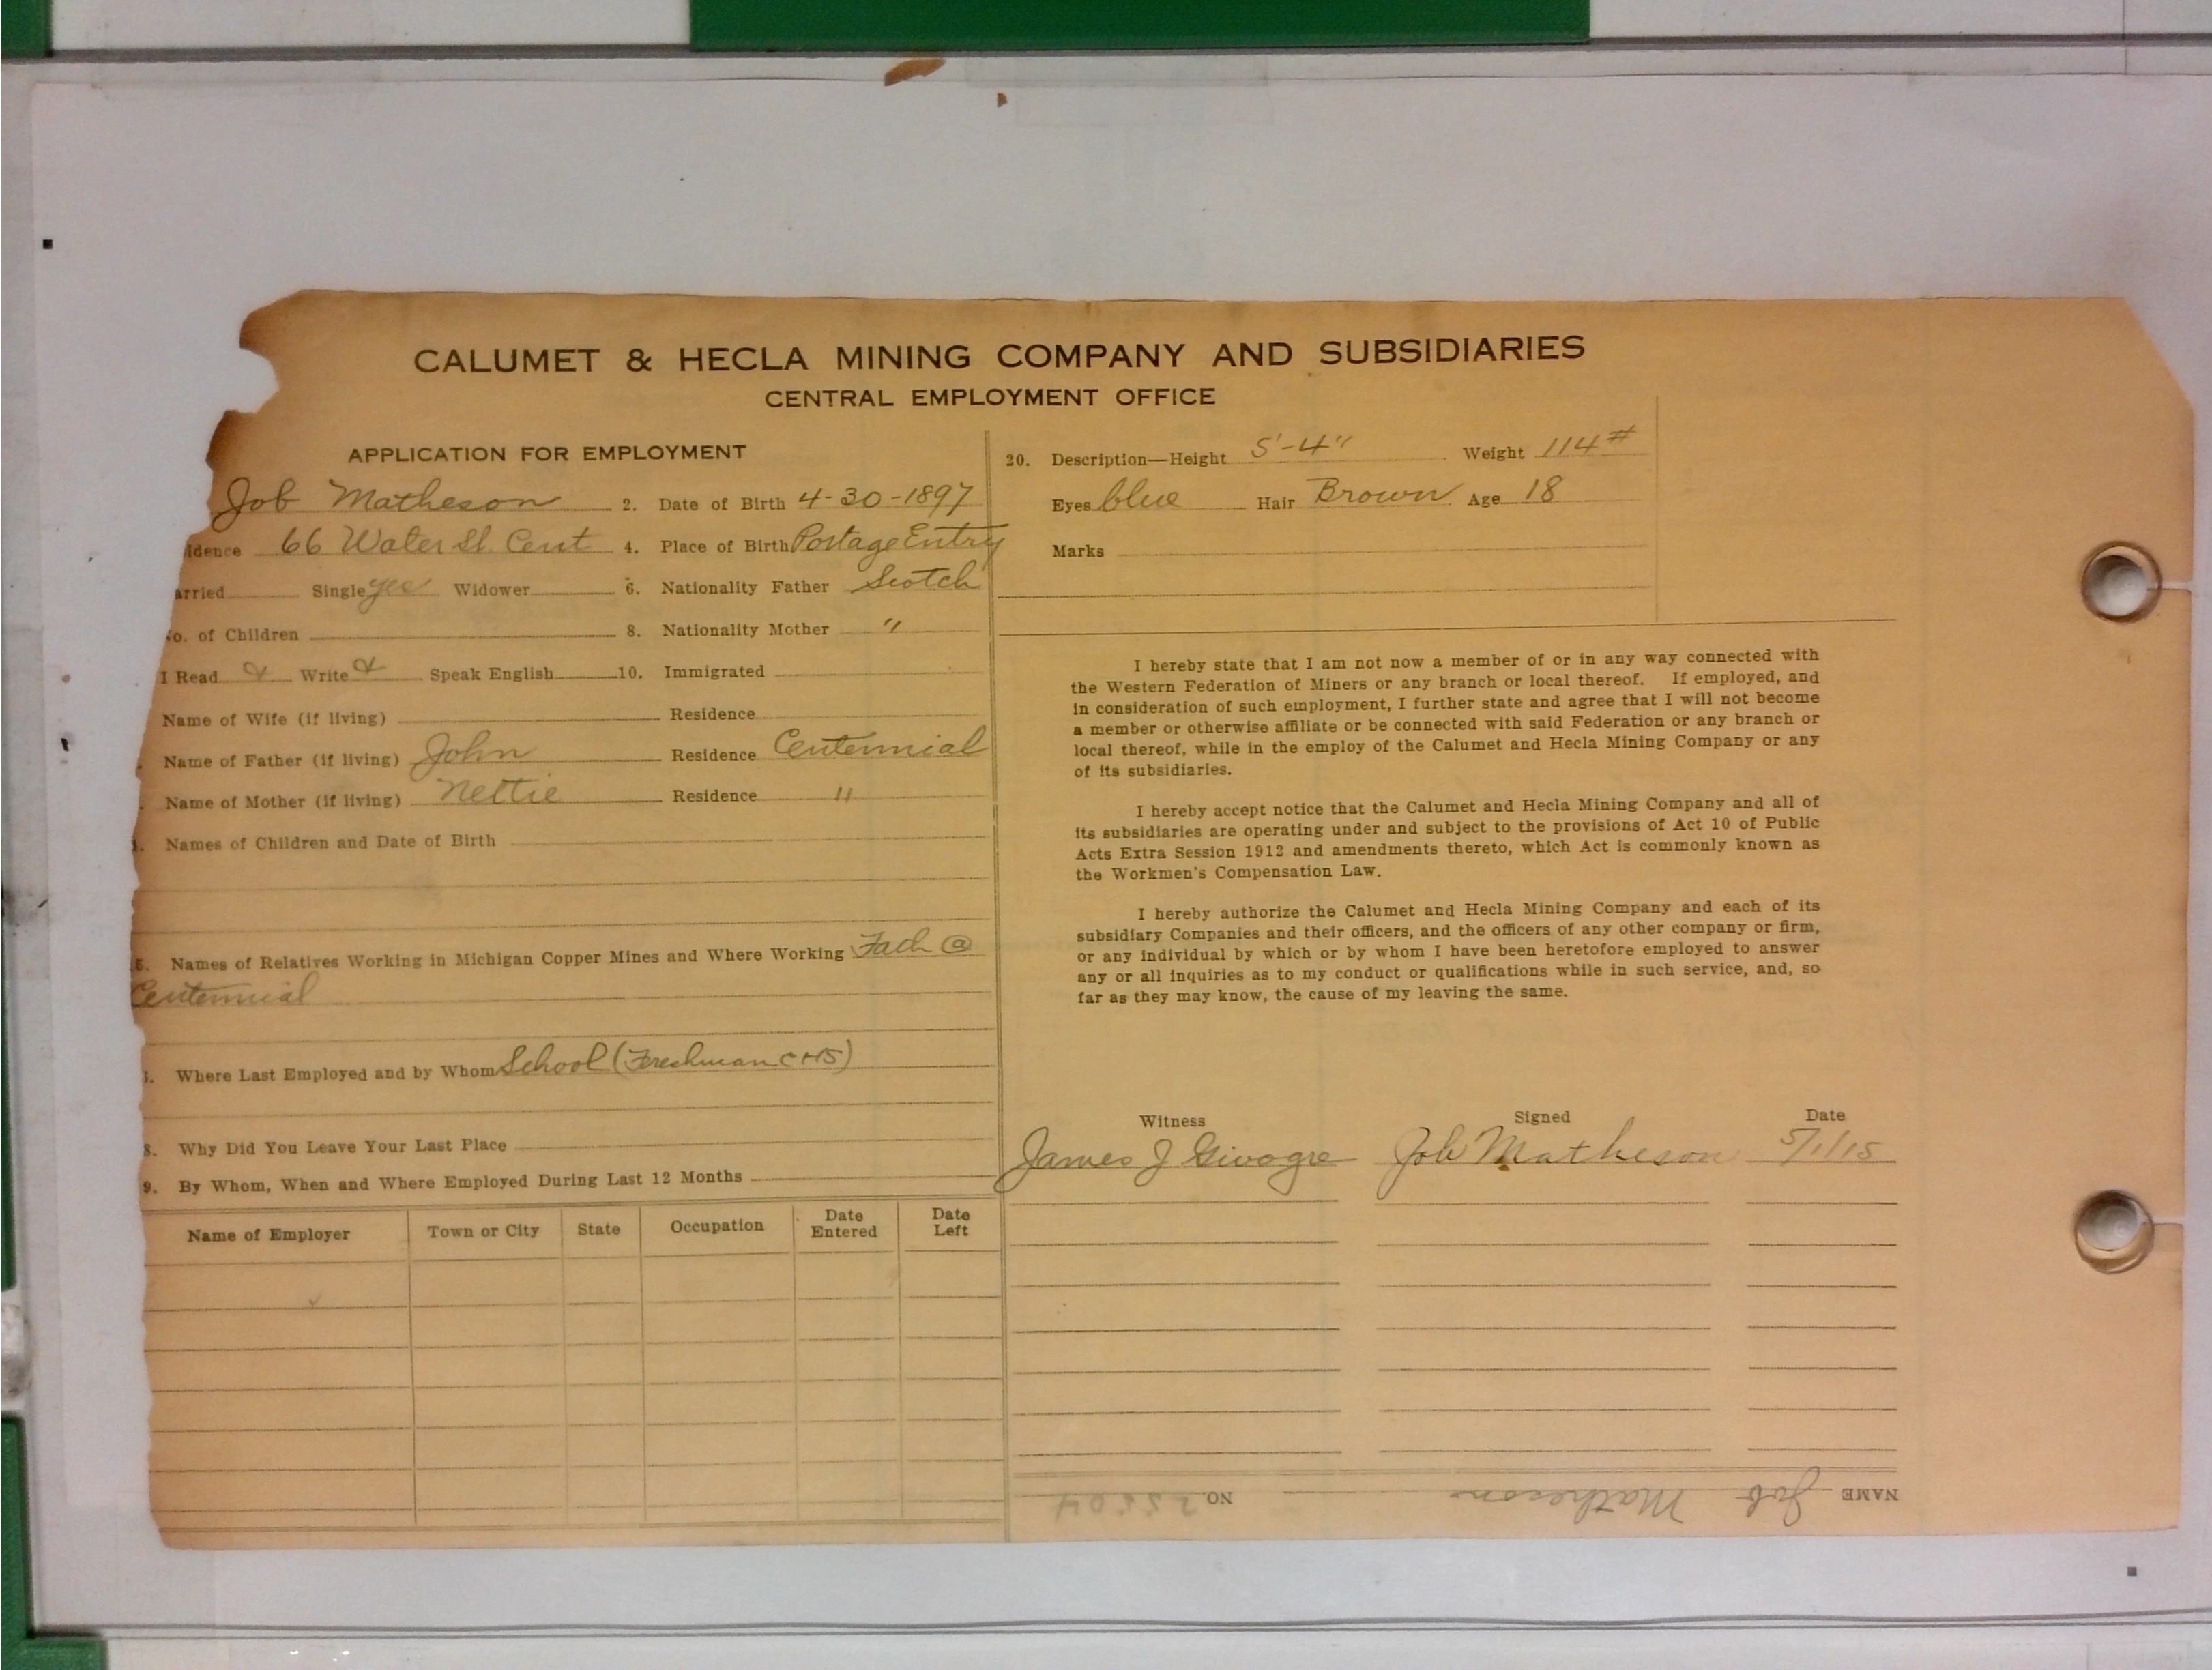 CALUMET & HECLA MINING COMPANY AND SUBSIDIARIES
CENTRAL EMPLOYMENT OFFICE
APPLICATION FOR EMPLOYMENT
Job Matheson 2. Date of Birth 4-30-1897
idence 66 Water St. Cent 4. Place of Birth Portage Entry
arried Single yes Widower 6. Nationality Father Scotch
o. of Children 8. Nationality Mother "
I Read Write Speak English 10. Immigrated
Name of Wife (if living) Residence
Name of Father (if living) John Residence Centennial
Name of Mother (if living) Nettie Residence "
Names of Children and Date of Birth
5. Names of Relatives Working in Michigan Copper Mines and Where Working Fath @
Centennial
Where Last Employed and by Whom School (Freshman CHS)
8. Why Did You Leave Your Last Place
9. By Whom, When and Where Employed During Last 12 Months
Name of Employer Town or City State Occupation Date Entered Date Left
20. Description—Height 5'-4" Weight 114#
Eyes blue Hair Brown Age 18
Marks
I hereby state that I am not now a member of or in any way connected with
the Western Federation of Miners or any branch or local thereof. If employed, and
in consideration of such employment, I further state and agree that I will not become
a member or otherwise affiliate or be connected with said Federation or any branch or
local thereof, while in the employ of the Calumet and Hecla Mining Company or any
of its subsidiaries.
I hereby accept notice that the Calumet and Hecla Mining Company and all of
its subsidiaries are operating under and subject to the provisions of Act 10 of Public
Acts Extra Session 1912 and amendments thereto, which Act is commonly known as
the Workmen's Compensation Law.
I hereby authorize the Calumet and Hecla Mining Company and each of its
subsidiary Companies and their officers, and the officers of any other company or firm,
or any individual by which or by whom I have been heretofore employed to answer
any or all inquiries as to my conduct or qualifications while in such service, and, so
far as they may know, the cause of my leaving the same.
Witness Signed Date
James J Job Matheson 5/1/15
NAME Job Matheson NO.